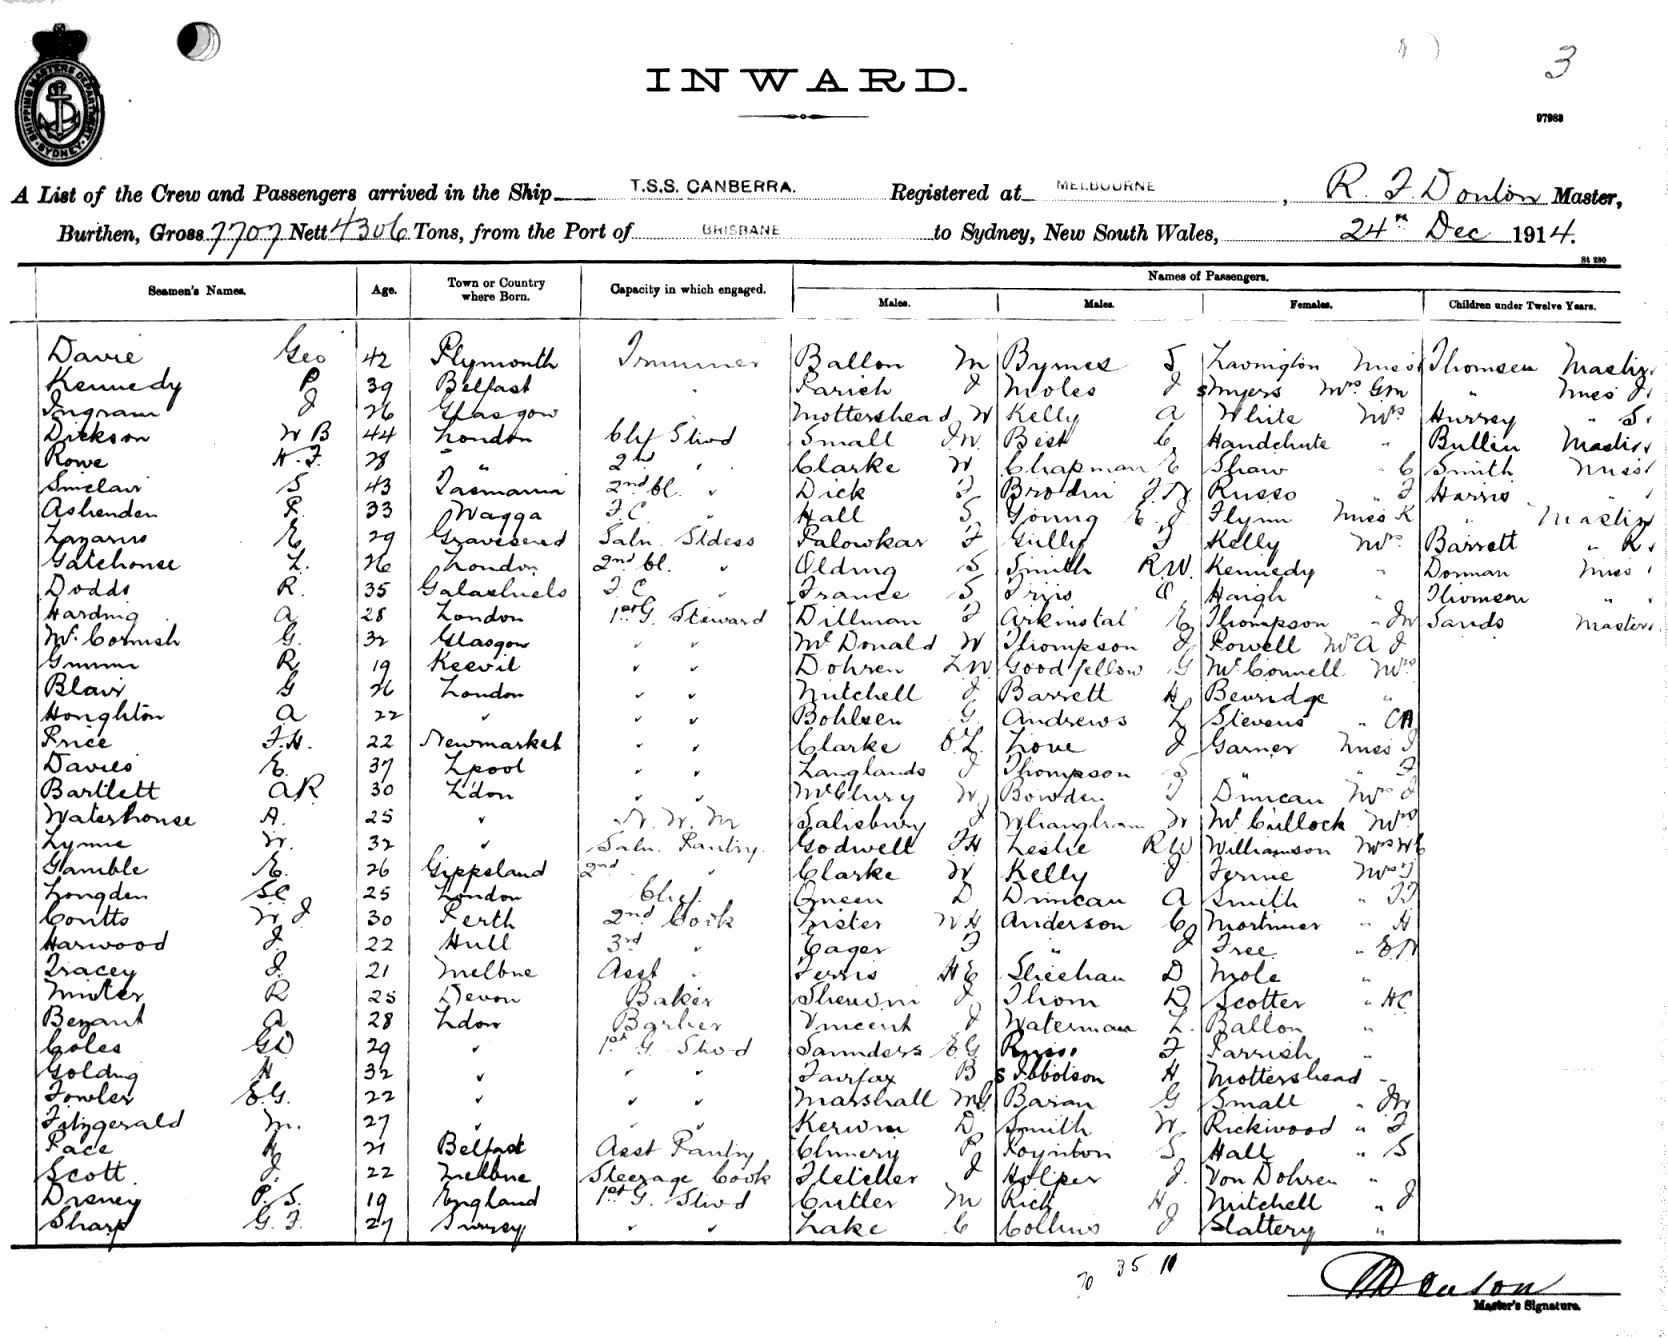 SHIPPING MASTERS DEPARTMENT SYDNEY
3
INWARD.
97963
A List of the Crew and Passengers arrived in the Ship T.S.S. CANBERRA. Registered at MELBOURNE, R. F. Donlon Master,
Burthen, Gross 7707 Nett 4306 Tons, from the Port of BRISBANE to Sydney, New South Wales, 24th Dec 1914.
St 280
Names of Passengers.
Seamen's Names. Age. Town or Country where Born. Capacity in which engaged. Males. Males. Females. Children under Twelve Years.
Davie Geo 42 Plymouth Trimmer Ballon M Byrnes Lavington Miss Thomsen
Kennedy P 39 Belfast " Parish J Moles J Myers Mrs GM " Miss J
Ingram J 26 Glasgow Mottershead W Kelly A White Mrs Hurrey " S
Dickson W B 44 London Chf Stwd Small J.W. Best C Handchute " Bullen
Rowe H. J. 28 " " 2nd " Clarke W Chapman E Shaw " C Smith Miss
Sinclair S 43 Tasmania 2nd Cl. " Dick J Brodin J.W Russo " F Harris "
Ashenden P. 33 Wagga F.C. " Hall S Young E. J Flynn Miss K "
Lazarus E 29 Gravesend Saln. Stdess Palowkar F Gully J Kelly Mrs Barrett " R
Gatehouse L. 26 London 2nd Cl. " Olding S Smith R.W. Kennedy " Dorman Miss
Dodds R. 35 Galashiels F C " France S Haigh " Thomsen "
Harding A 28 London 1st G. Steward Dillman J Arkinstal E Thompson " JW Sands Masters
McCormish G. 32 Glasgow " " McDonald W Thompson J Powell Mrs A J
Gunn R 19 Keevil " " Dohren L.W. Goodfellow G McConnell Mrs
Blair G 26 London " " Mitchell J Barrett H Beveridge "
Houghton A 22 " " " Bohlsen G. Andrews L Stevens " CA
Price F.H. 22 Newmarket " " Clarke O.L. Love J Garner Miss J
Davies E. 37 Lpool " " Langlands J Thompson S " " J
Bartlett AR 30 L'don " " McClury W Bowden J Duncan Mrs J
Waterhouse A. 25 " N. W. M Salisbury J W McCullock Mrs
Lynne W. 32 " Saln. Pantry. Godwell F H Leslie R W Williamson Mrs WC
Gamble E. 26 Gippsland 2nd " Clarke W Kelly J Fernie Mrs J
Longden SC 25 London Chef. Queen D Duncan A Smith "
Coutts W J 30 Perth 2nd Cook Lister W H Anderson C Mortimer " H
Harwood J. 22 Hull 3rd " Eager F " J Free " E.W
Tracey J. 21 Melbne Asst " Ferris H E Sheehan D Mole "
Minter R 25 Devon Baker Sherwin J Thom D Scotter " HC
Bezant A 28 Ldon Barber Vincent J Waterman L. Ballon "
Coles GD 29 " 1st G. Stwd Saunders E G Russo F Parrish "
Golding H 32 " " " Fairfax B Ibbotson H Mottershead "
Fowler E.G. 22 " " " Marshall Baran G Small " JW
Fitzgerald M. 27 " " " Kerwin D Smith W. Rickwood " J
Pace H 21 Belfast Asst Pantry Chinery P Poynton S Hall " S
Scott J. 22 Melbne Steerage Cook Fletcher J Holper J. Von Dohren "
Disney P. S. 19 England 1st G. Stwd Cutler M Rich H Mitchell " J
Sharp G. F. 27 Surrey " " Lake C Collins J Slattery "
70 35 11
Master's Signature.